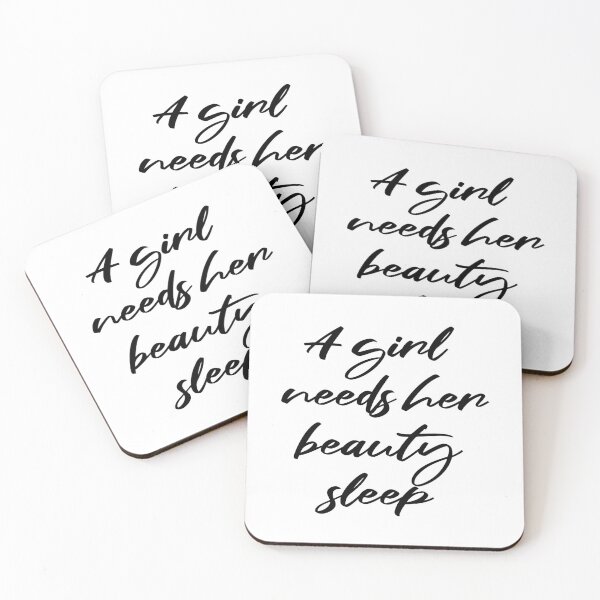 A girl
needs her
A girl
needs her
beauty
A girl
needs her
beauty
sleep
A girl
needs her
beauty
sleep